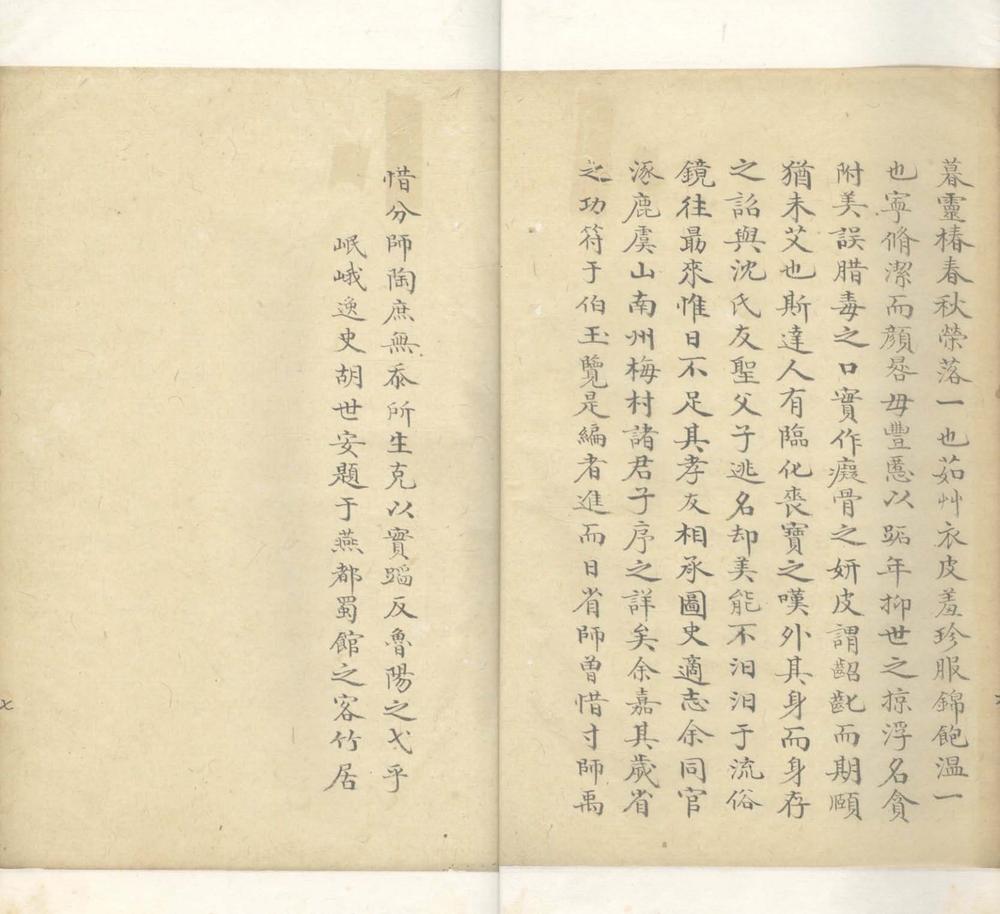 暮靈椿春秋榮落一也茹艸衣皮羞珍服錦飽溫一
也寧脩潔而顏晷毋豐慝以跖年抑世之掠浮名貪
附美誤腊毒之口實作癡骨之妍皮謂齠齔而期頤
猶未艾也斯達人有臨化喪寶之嘆外其身而身存
之詔與沈氏友聖父子逃名却美能不汩汩于流俗
鏡往最來惟日不足其孝友相承圖史適志余同官
涿鹿虞山南州梅村諸君子序之詳矣余嘉其歲省
之功符于伯玉覽是編者進而日省師曾惜寸師禹
惜分師陶庶無忝所生克以實蹈反魯陽之戈乎
岷峨逸史胡世安題于燕都蜀館之客竹居
七